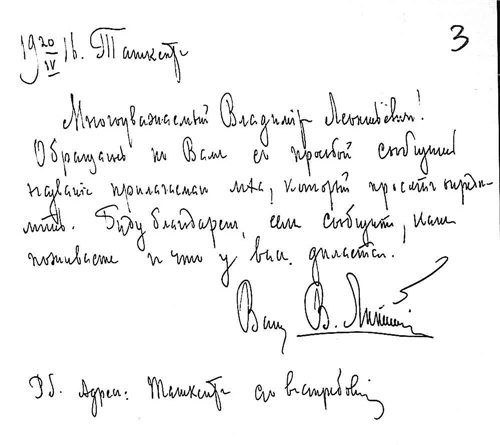 19 20/IV 16. Ташкентъ
3
Многоуважаемый Владиміръ Леонтьевичъ!
Обращаюсь къ Вамъ съ просьбой сообщить
названіе прилагаемаго мха, который просятъ опредѣ-
лить. Буду благодаренъ, если сообщите, какъ
поживаете и что у васъ дѣлается.
Вашъ В. Липскій
Адресъ: Ташкентъ до востребованія